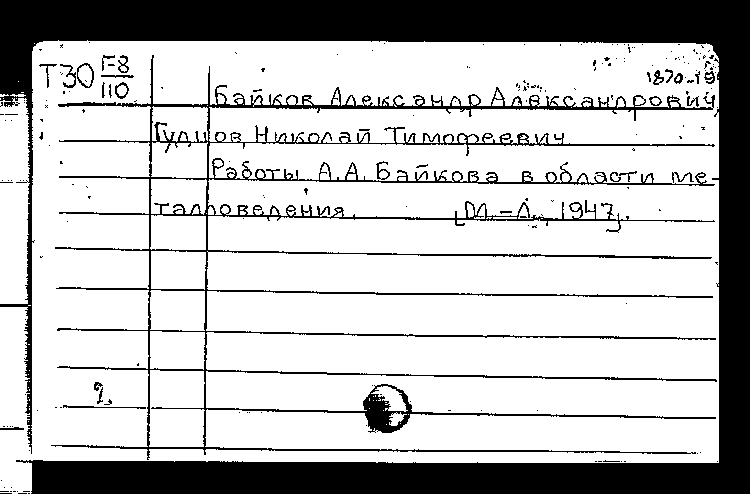 Т30 F-8
110
1870-19
Байков, Александр Александрович,
Гудцов, Николай Тимофеевич
Работы А.А. Байкова в области ме-
талловедения. [М.-Л., 1947].
2.